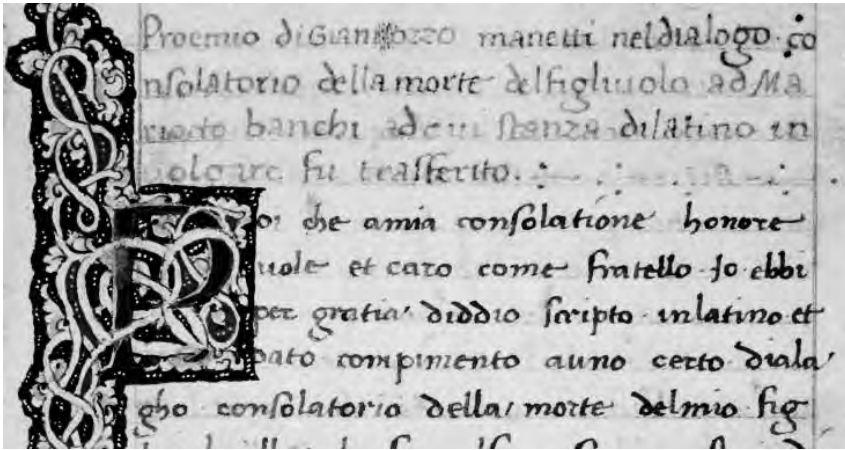 Proemio di Giannozzo manetti nel dialogo co
nsolatorio della morte del figliuolo ad Ma
riocto banchi ad cui stanza di latino in
uolgare fu trasferito.
Poi che a mia consolatione honore
uole et caro come fratello Io ebbi
per gratia diddio scripto in latino et
dato compimento a uno certo diala
gho consolatorio della morte del mio fig